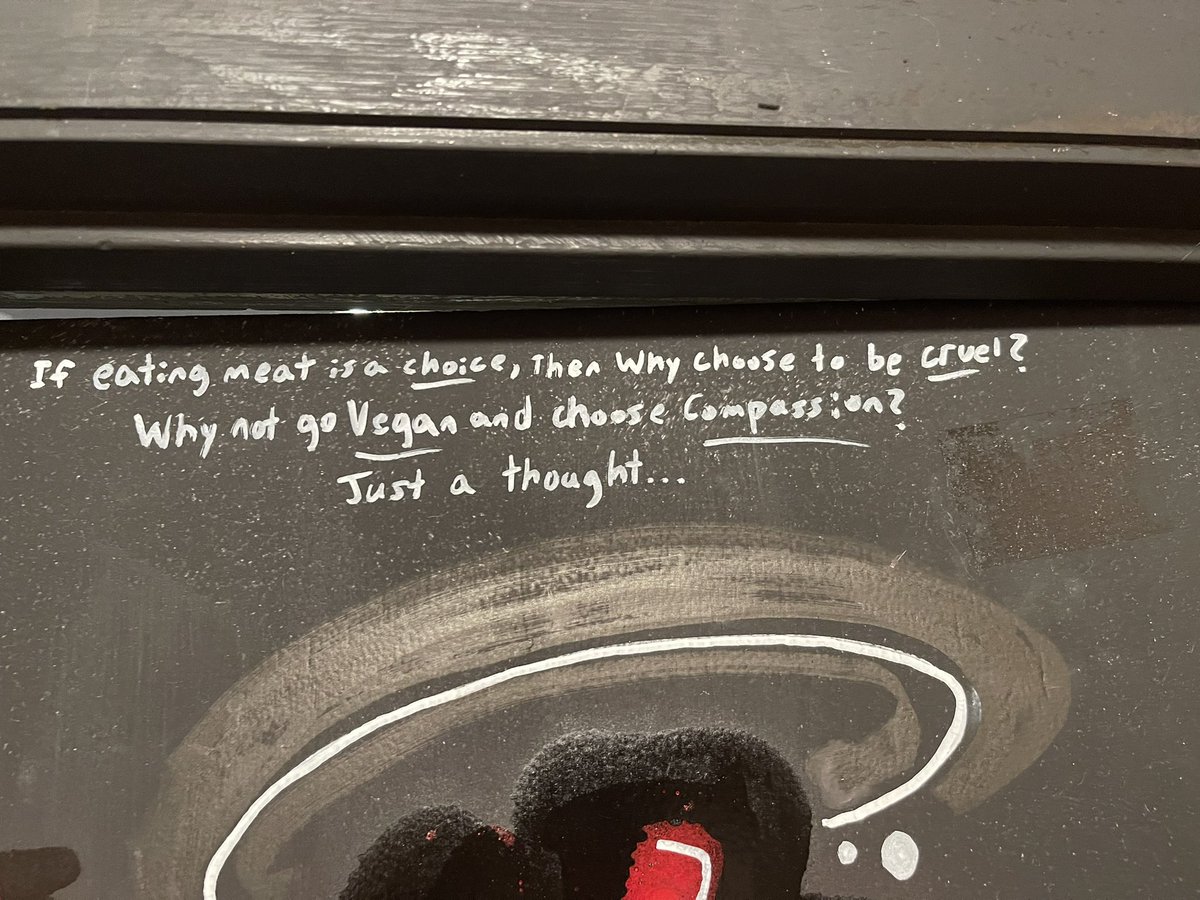 If eating meat is a choice, Then Why choose to be cruel?
Why not go Vegan and choose Compassion?
Just a thought...